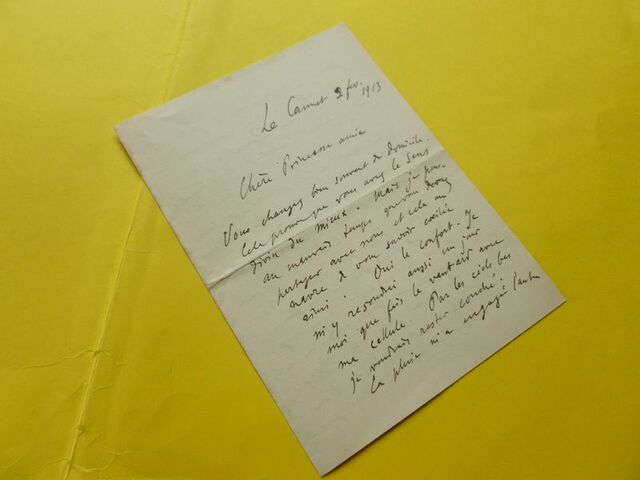 Le Cannet 2 fev. 1913
Chère Princesse amie
Vous changez bien souvent de domicile.
Cela prouve que vous avez le sens
divin du mieux. Mais je pense
au mauvais temps que vous devez
partager avec nous et cela me
navre de vous savoir exilée
ainsi. Oui le confort. Je
m'y résoudrai aussi un jour
moi que fais le vent avec
ma cellule. Par les ciels bas
je voudrais rester couché.
La pluie m'a engagé l'autre